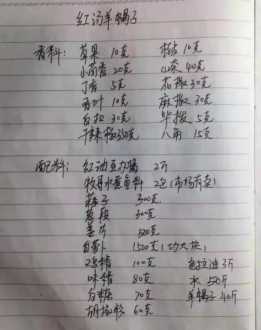 红汤羊蝎子
香料: 草果 10克 桂枝 10克
小茴香 20克 山奈 40克
丁香 5克 花椒 30克
香叶 10克 麻椒 30克
白扣 30克 毕拨 5克
干辣椒 350克 八角 15克
配料: 红油豆瓣酱 2斤
牧哥水煮鱼料 2包 (市场有卖)
蒜子 300克
葱段 300克
姜片
白萝卜 1500克 (切大块)
鸡精 100克 色拉油 3斤
味精 80克 水 50斤
白糖 70克 羊蝎子 40斤
胡椒粉 60克